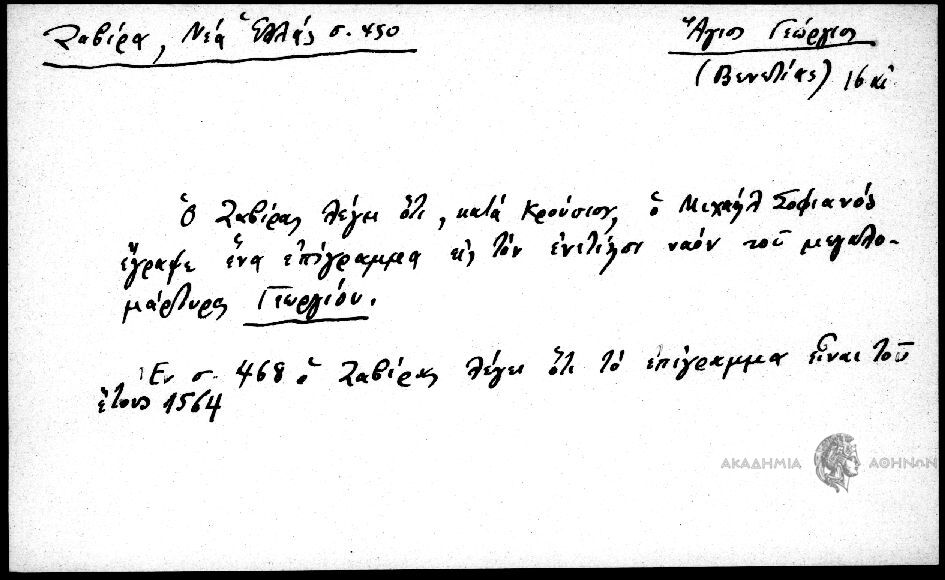 Ζαβίρα, Νέα Ἑλλάς σ. 450
Ἅγιος Γεώργιος
(Βενετίας) 16 αἰ
Ὁ Ζαβίρας λέγει ὅτι, κατά Κρούσιον, ὁ Μιχαήλ Σοφιανός
ἔγραψε ἕνα ἐπίγραμμα εἰς τόν ἐνετίῃσι ναόν τοῦ μεγαλο-
μάρτυρος Γεωργίου.
Ἐν σ. 468 ὁ Ζαβίρας λέγει ὅτι τό ἐπίγραμμα εἶναι τοῦ
ἔτους 1564
ΑΚΑΔΗΜΙΑ ΑΘΗΝΩΝ